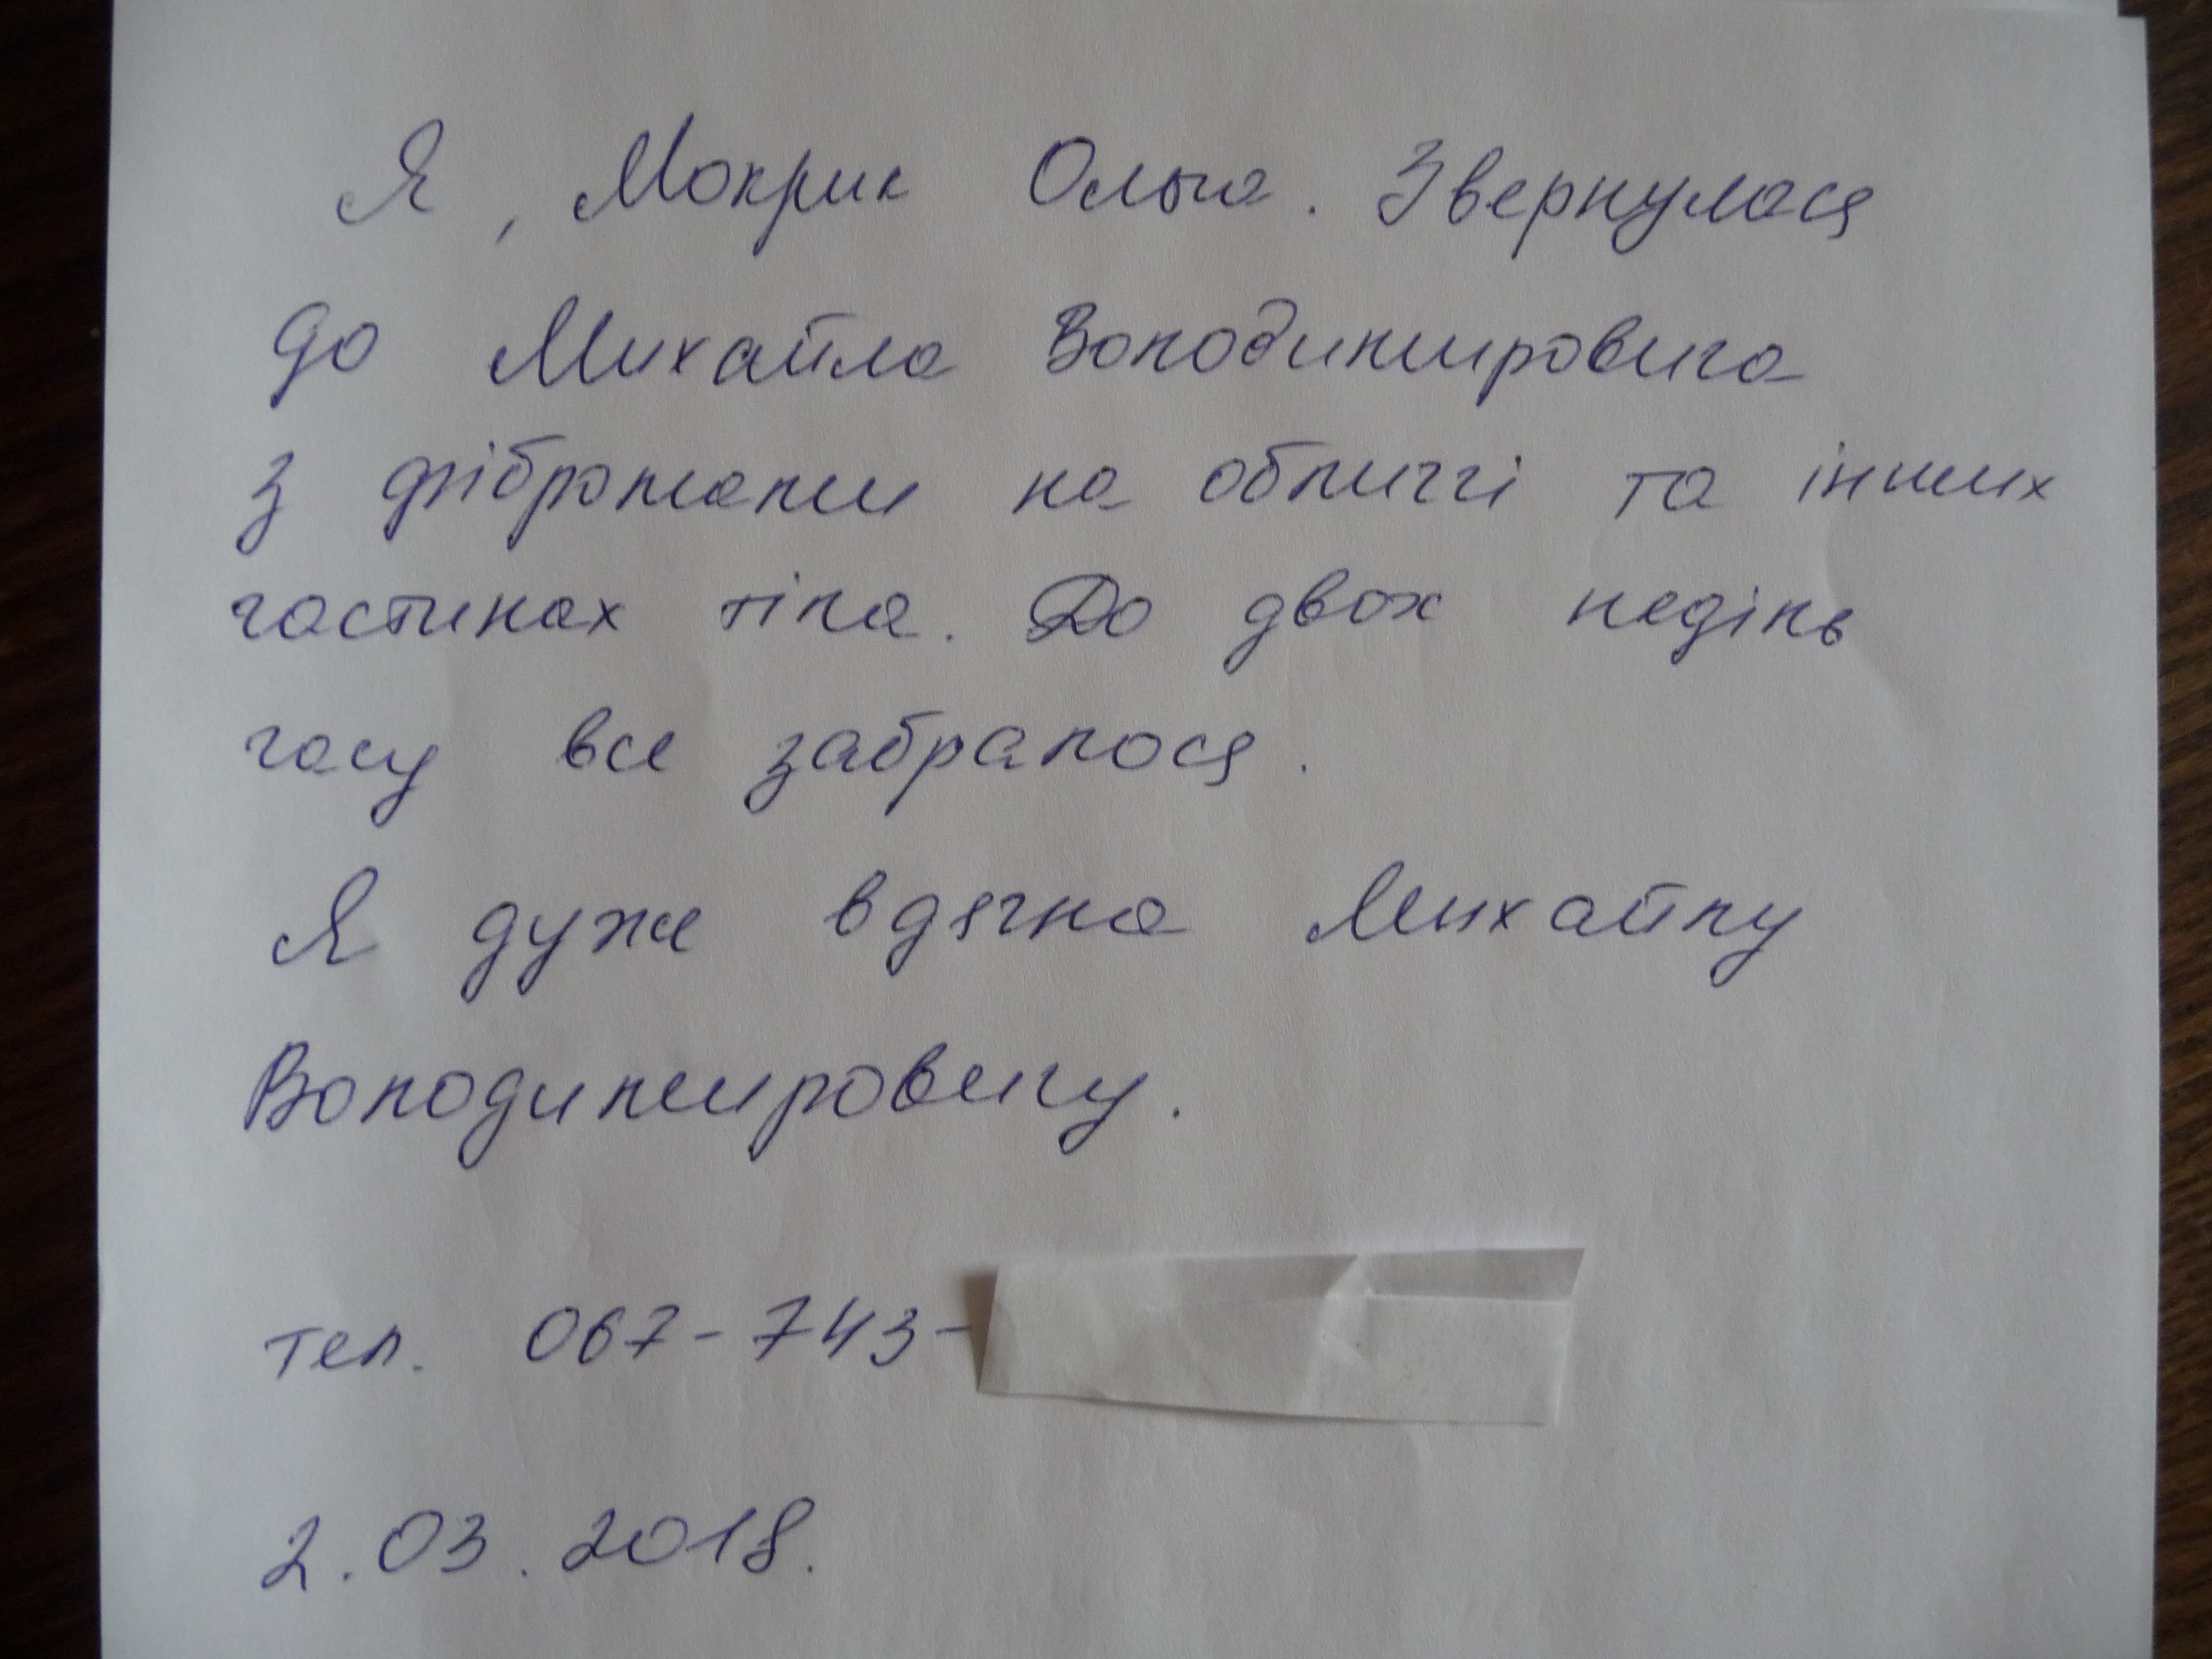 Я, Мокрик Ольга. Звернулася
до Михайла Володимировича
з фібромами на обличчі та інших
частинах тіла. До двох неділь
часу все забралося.
Я дуже вдячна Михайлу
Володимировичу.
тел. 067-743-
2.03.2018.